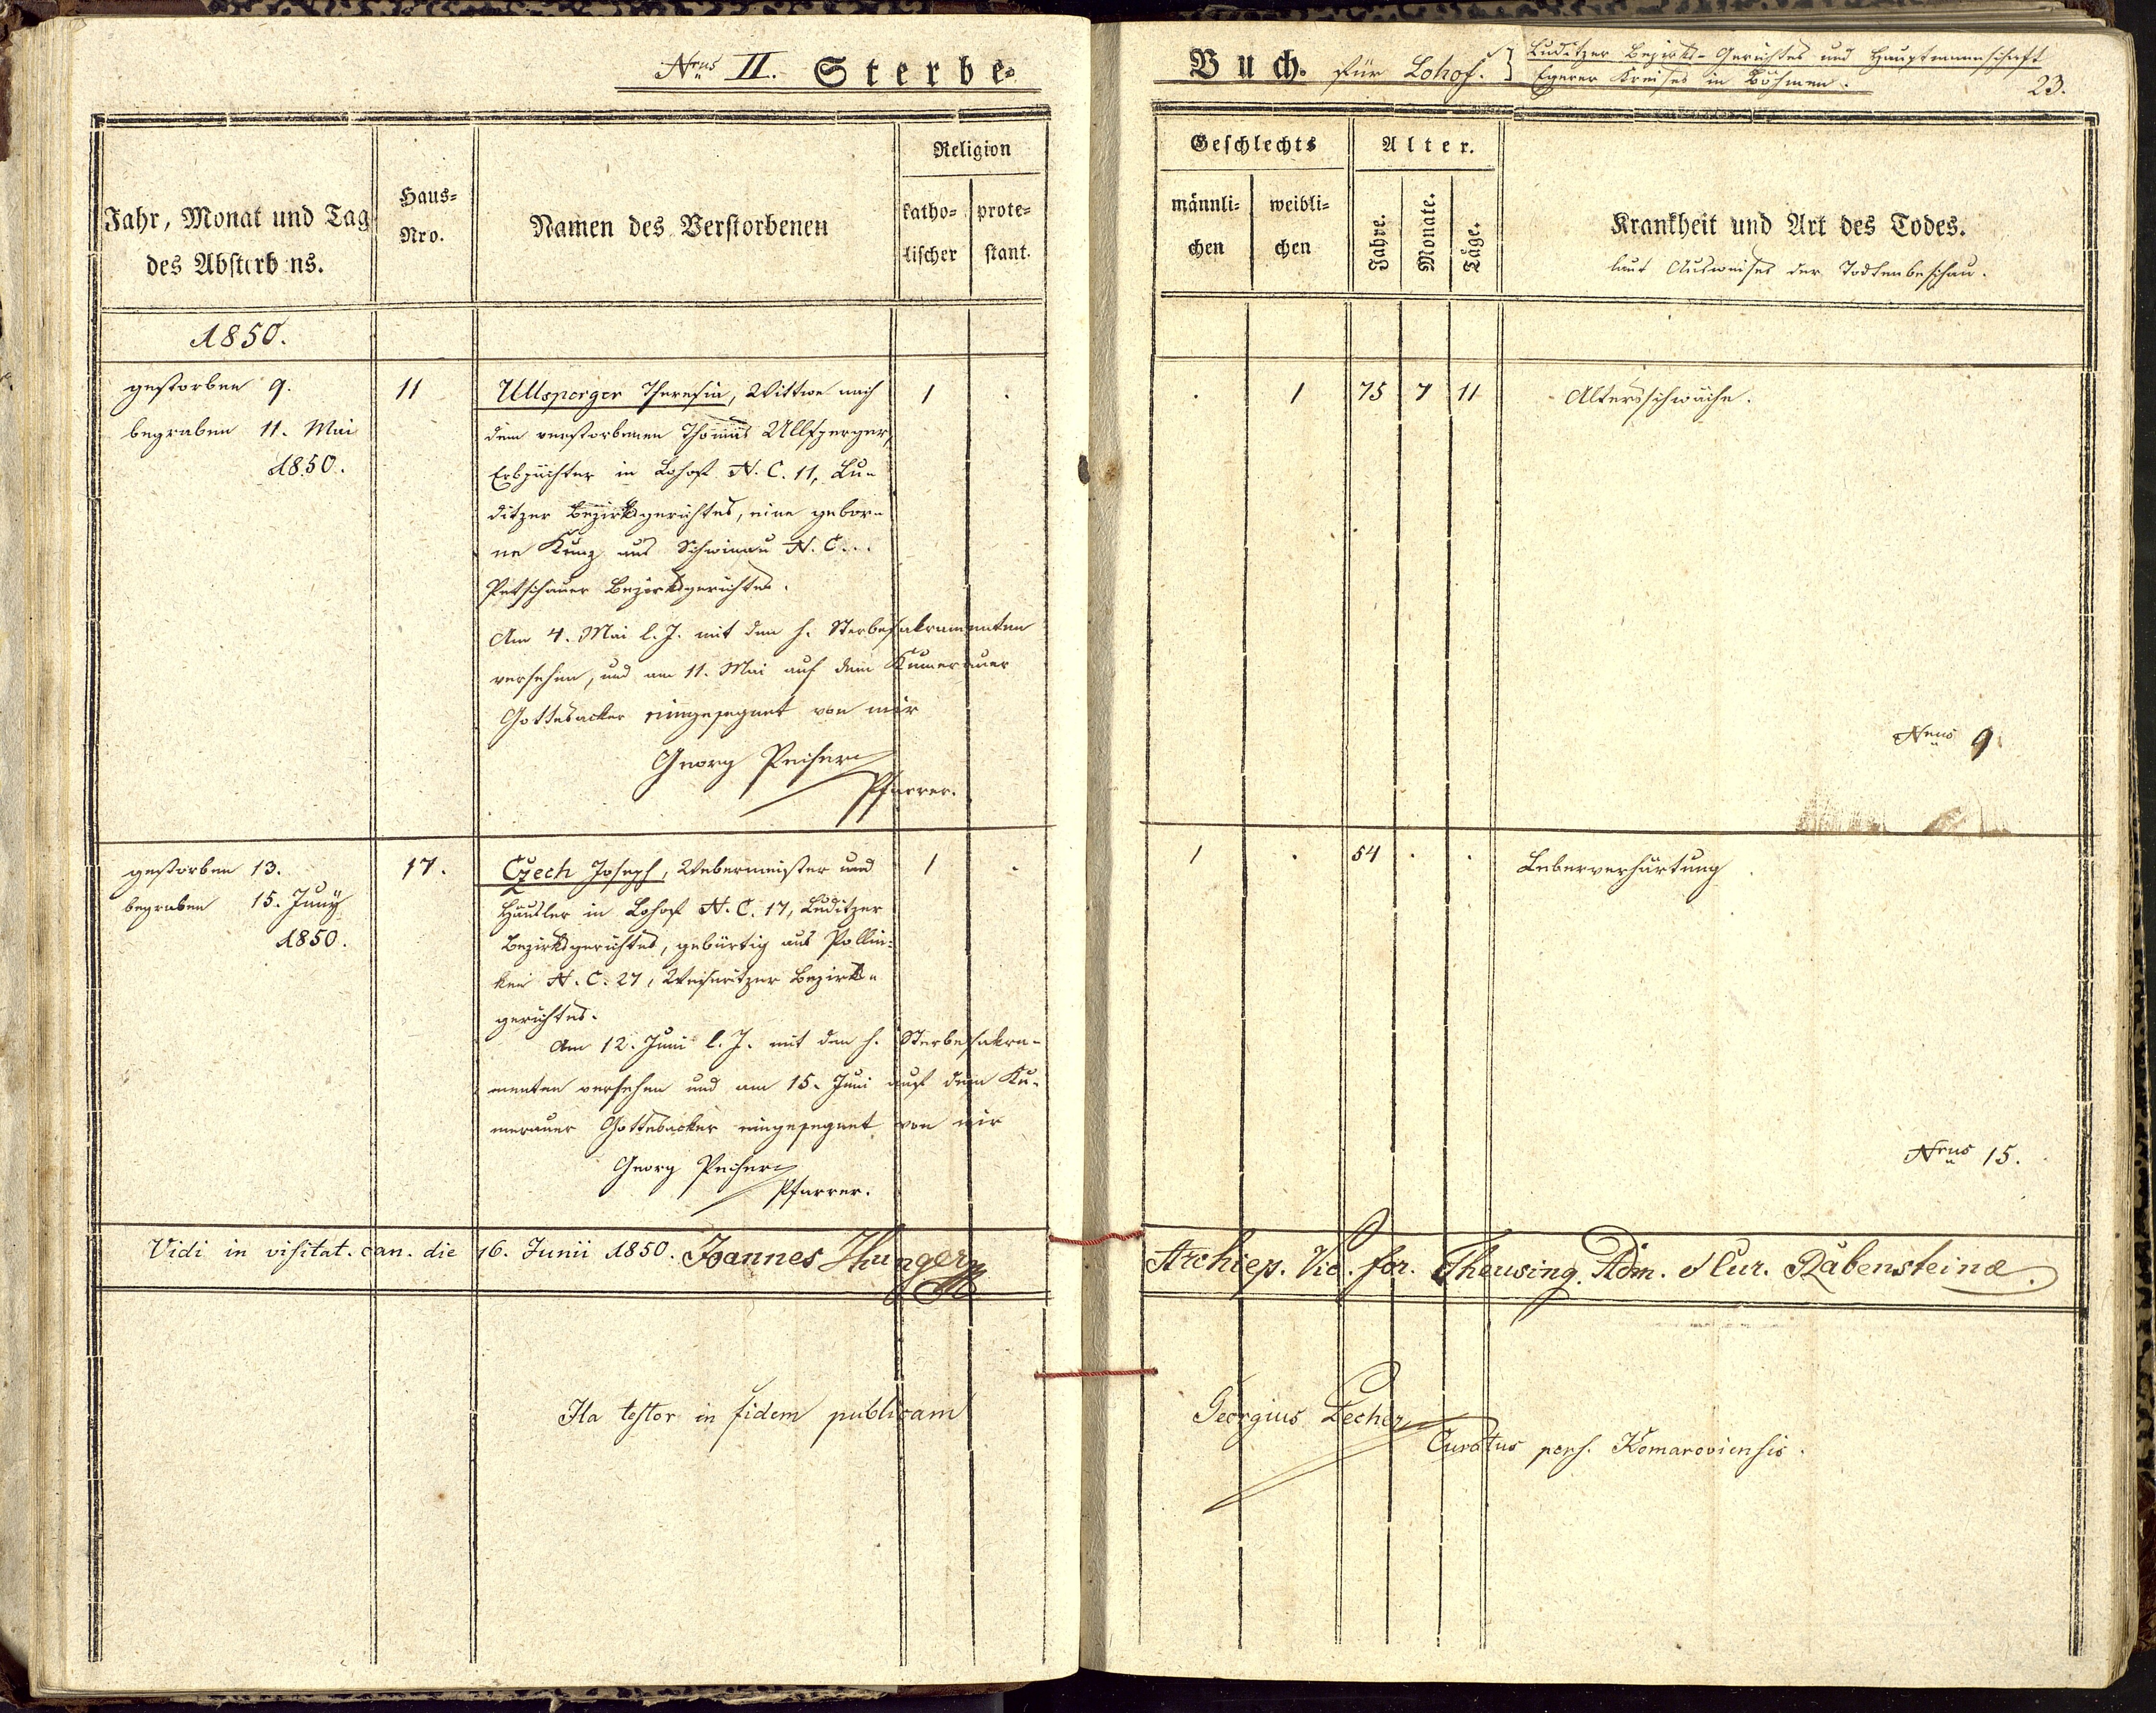 Nrus II. Sterbe-
Buch. für Lohof. } Luditzer Bezirks-Gerichtes und Hauptmannschaft
Egerer Kreises in Böhmen.
23.
Jahr, Monat und Tag
des Absterbens.
Haus-
Nro.
Namen des Verstorbenen
Religion
katho-
lischer
prote-
stant.
Geschlechts
männli-
chen
weibli-
chen
Alter.
Jahre.
Monate.
Täge.
Krankheit und Art des Todes.
laut Ausweises der Todtenbeschau.
1850.
gestorben 9.
begraben 11. Mai
1850.
11
Ullsperger Theresia, Wittwe nach
dem verstorbenen Thomas Ullsperger,
Erbpächter in Lohof N. C. 11, Lu-
ditzer Bezirksgerichtes, eine gebor-
ne Kunz aus Schwinau N. C...
Petschauer Bezirksgerichtes.
Am 4. Mai l. J. mit den h. Sterbesakramenten
versehen, und am 11. Mai auf dem Kumerauer
Gottesacker eingesegnet von mir
Georg Pecher
Pfarrer.
1 .
. 1 75 7 11
Altersschwäche.
Nrus 9
gestorben 13.
begraben 15. Juny
1850.
17.
Czech Joseph, Webermeister und
Häusler in Lohof N. C. 17, Luditzer
Bezirksgerichtes, gebürtig aus Pollin-
ken N. C. 27, Weseritzer Bezirks-
gerichtes.
Am 12. Juni l. J. mit den h. Sterbesakra-
menten versehen und am 15. Juni auf dem Ku-
merauer Gottesacker eingesegnet von mir
Georg Pecher
Pfarrer.
1 .
1 . 54 . .
Leberverhärtung
Nrus 15.
Vidi in visitat. can. die 16. Junii 1850. Joannes Hunger
Archiep. Vic. for. Theusing. Adm. Cur. Rabensteinæ.
Ita testor in fidem publicam
Georgius Pecher
Curatus pers. Komaroviensis.